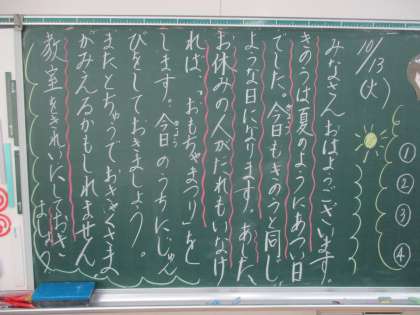 10/13(火)
みなさん おはようございます。
きのうは夏のようにあつい日
でした。今日もきのうと同じ
ような日になります。あした、
お休みの人がだれもいなけ
れば、「おもちゃまつり」をし
します。今日のうちにじゅん
びをしておきましょう。
またとちゅうでおきゃくさま
がみえるかもしれません。
教室をきれいにしておき
ましょう
①
②
③
④